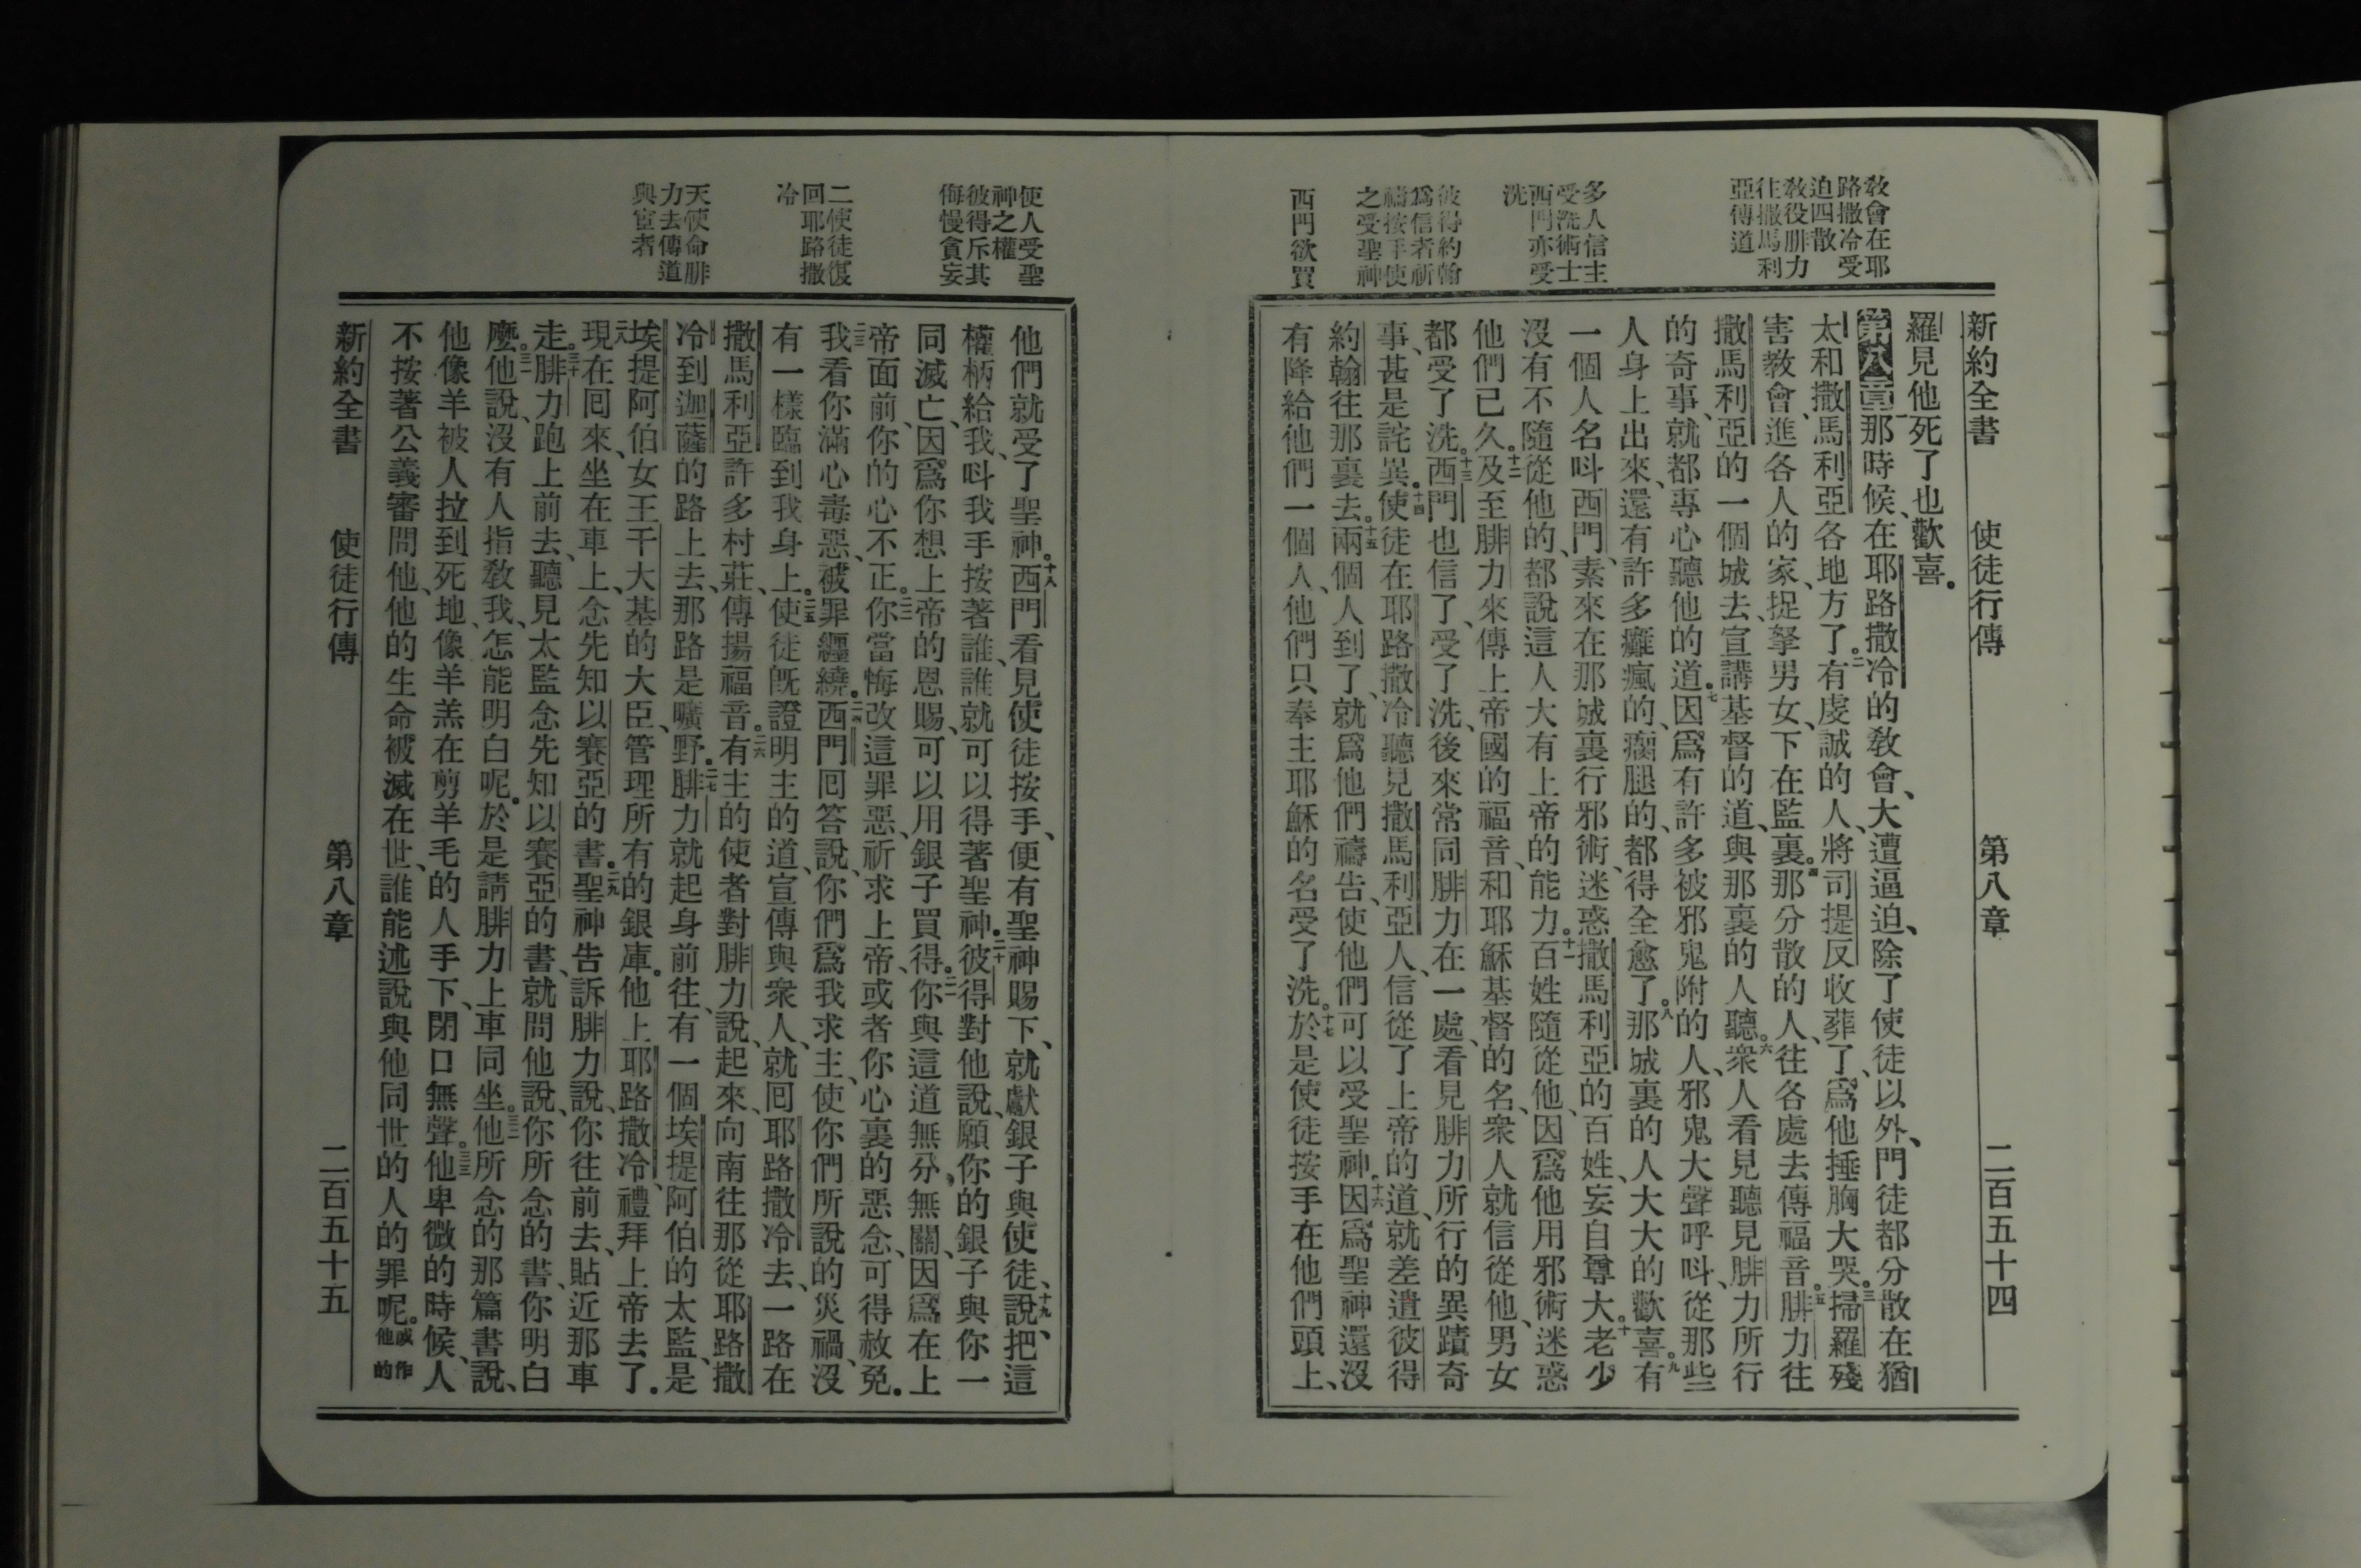 新約全書 使徒行傳 第八章 二百五十四
教會在耶
路撒冷受
迫四散
教役腓力
往撒馬利
亞傳道
多人信主
受洗術士
西門亦受
洗
彼得約翰
爲信者祈
禱按手使
之受聖神
西門欲買
羅見他死了也歡喜。
第八章 一那時候、在耶路撒冷的教會、大遭逼迫、除了使徒以外、門徒都分散在猶
太和撒馬利亞各地方了。二有虔誠的人、將司提反收葬了、爲他捶胸大哭。三掃羅殘
害教會、進各人的家、捉拏男女、下在監裏。四那分散的人、往各處去傳福音。五腓力往
撒馬利亞的一個城去、宣講基督的道、與那裏的人聽。六衆人看見聽見腓力所行
的奇事、就都專心聽他的道。七因爲有許多被邪鬼附的人、邪鬼大聲呼呌、從那些
人身上出來、還有許多癱瘋的、瘸腿的、都得全愈了。八那城裏的人大大的歡喜。九有
一個人名呌西門、素來在那城裏行邪術、迷惑撒馬利亞的百姓、妄自尊大。十老少
沒有不隨從他的、都說這人大有上帝的能力。十一百姓隨從他、因爲他用邪術迷惑
他們已久。十二及至腓力來傳上帝國的福音、和耶穌基督的名、衆人就信從他、男女
都受了洗。十三西門也信了、受了洗、後來常同腓力在一處、看見腓力所行的異蹟奇
事、甚是詫異。十四使徒在耶路撒冷聽見撒馬利亞人、信從了上帝的道、就差遣彼得
約翰往那裏去。十五兩個人到了、就爲他們禱告、使他們可以受聖神。十六因爲聖神還沒
有降給他們一個人、他們只奉主耶穌的名受了洗。十七於是使徒按手在他們頭上、
使人受聖
神之權
彼得斥其
侮慢貪妄
二使徒復
回耶路撒
冷
天使命腓
力去傳道
與宦者
他們就受了聖神。十八西門看見使徒按手、便有聖神賜下、就獻銀子與使徒、十九說、把這
權柄給我、呌我手按著誰、誰就可以得著聖神。二十彼得對他說、願你的銀子與你一
同滅亡、因爲你想上帝的恩賜、可以用銀子買得。二一你與這道無分、無關、因爲在上
帝面前、你的心不正。二二你當悔改這罪惡、祈求上帝、或者你心裏的惡念、可得赦免。
二三我看你滿心毒惡、被罪纏繞。二四西門回答說、你們爲我求主、使你們所說的災禍、沒
有一樣臨到我身上。二五使徒旣證明主的道、宣傳與衆人、就回耶路撒冷去、一路在
撒馬利亞許多村莊、傳揚福音。二六有主的使者對腓力說、起來、向南往那從耶路撒
冷到迦薩的路上去、那路是曠野。二七腓力就起身前往、有一個埃提阿伯的太監、是
埃提阿伯女王干大基的大臣、管理所有的銀庫。他上耶路撒冷、禮拜上帝去了。
現在回來、坐在車上、念先知以賽亞的書。二九聖神告訴腓力說、你往前去、貼近那車
走。三十腓力跑上前去、聽見太監念先知以賽亞的書、就問他說、你所念的書、你明白
麼。三一他說、沒有人指教我、怎能明白呢。於是請腓力上車同坐。三二他所念的那篇書說、
他像羊被人拉到死地、像羊羔在剪羊毛的人手下、閉口無聲。三三他卑微的時候、人
不按著公義審問他、他的生命被滅在世、誰能述說與他同世的人的罪呢。或作他的
新約全書 使徒行傳 第八章 二百五十五